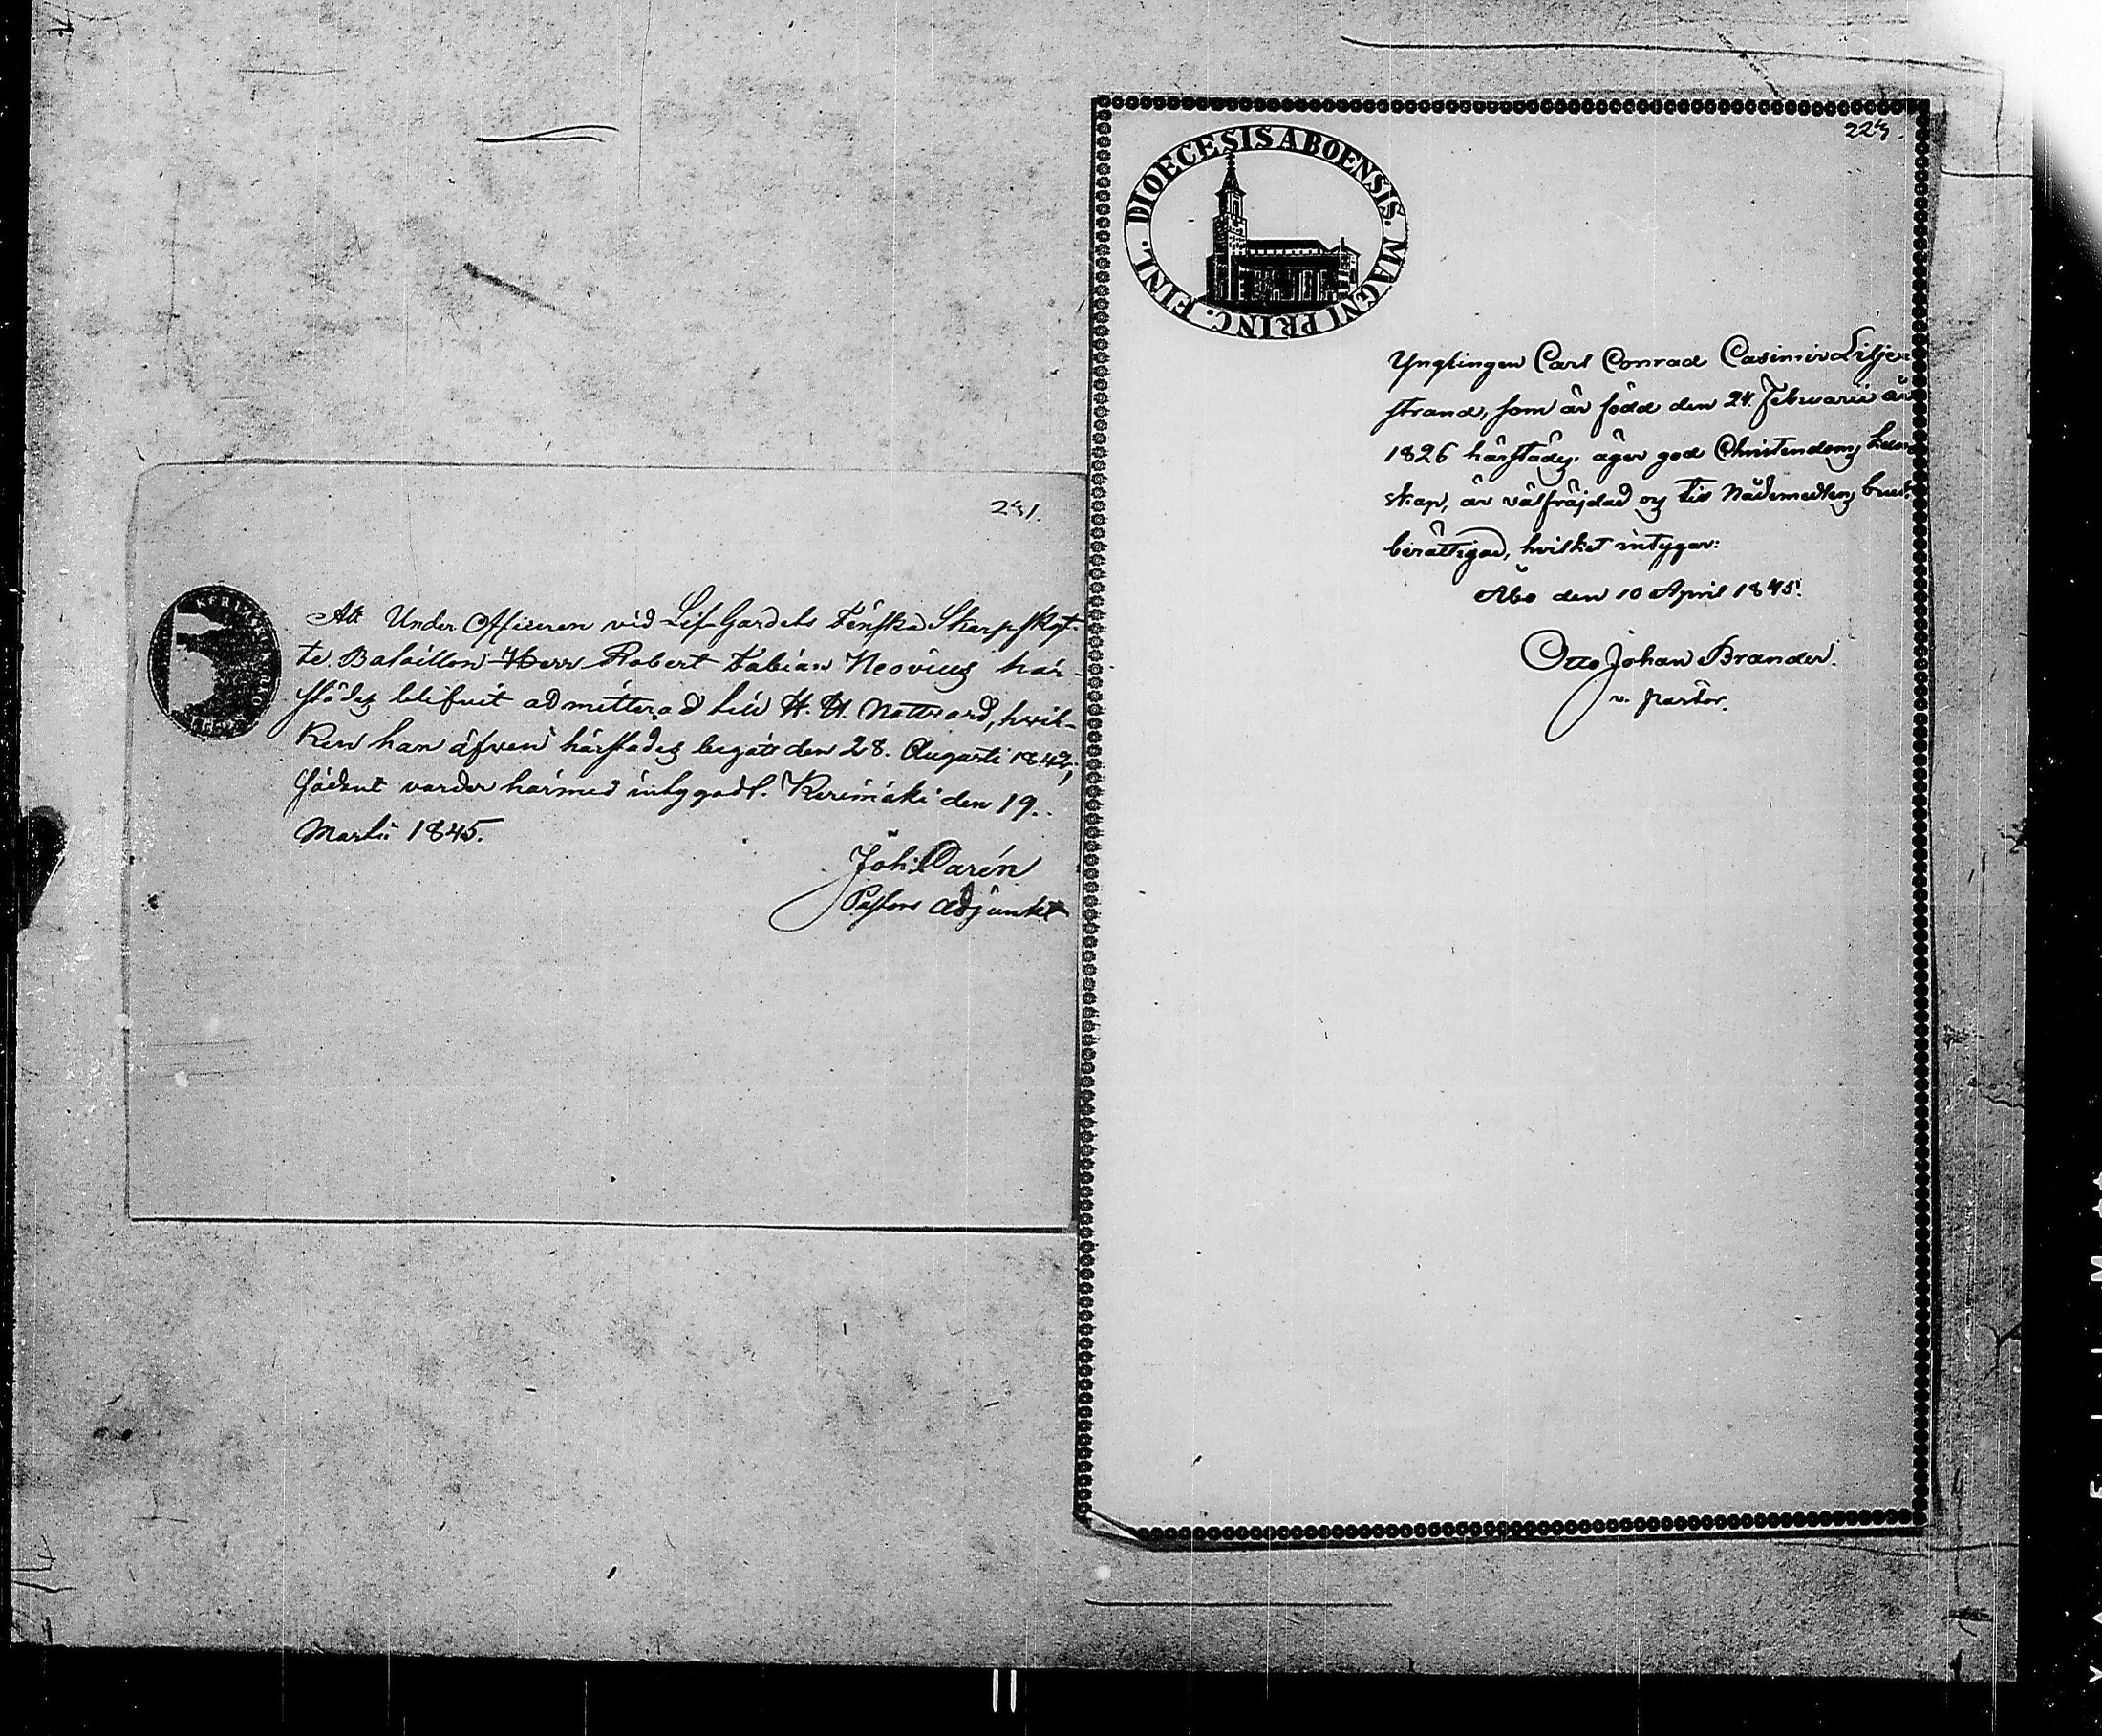 231.
Att Under Officeren vid Lif-Gardets Finska Skarpskyt-
te Bataillon Herr Robert Fabian Neovius här-
städes blifvit admitterad till H. H. Nattvard, hvil-
ken han äfven härstädes begått den 28. Augusti 1842,
sådant varder härmed intygadt. Kerimäki den 19.
Martii 1845.
Joh: Carén
Pastors Adjunkt
223.
DIOECESIS ABOENSIS. MAGNI PRINC. FINL.
Ynglingen Carl Conrad Casimir Lilje-
strand, som är född den 24. Februarii år
1826 härstädes, äger god Christendoms kun-
skap, är välfräjdad och till Nådemedlens bruk
berättigad, hvilket intygar:
Åbo den 10 April 1845.
Otto Johan Brander.
v. pastor.